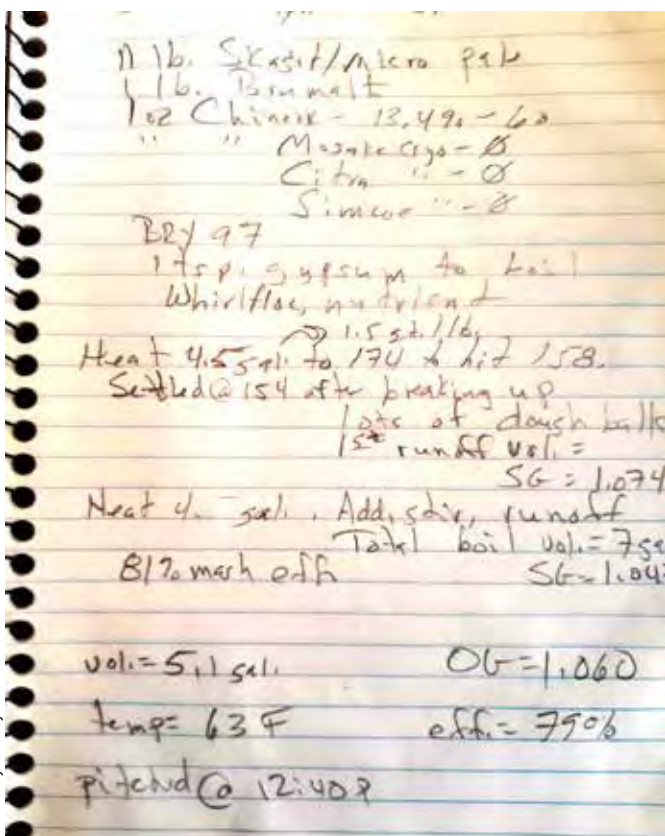 11 lb. Skagit/Micro pale
1 lb. Brumalt
1 oz Chinook - 13.4% - 60
" " Mosaic Cryo - Ø
Citra " - Ø
Simcoe " - Ø
BRY 97
1 tsp. gypsum to boil
Whirlfloc, nutrient
1.5 qt./lb.
Heat 4.5 gal. to 174 to hit 158.
Settled @ 154 after breaking up
lots of dough balls
1st runoff vol. =
SG = 1.074
Heat 4. gal. Add, stir, runoff
Total boil vol. = 7 ga
81% mash eff. SG = 1.04
vol. = 5.1 gal. OG = 1.060
temp = 63 F eff. = 79%
pitched @ 12:40 P